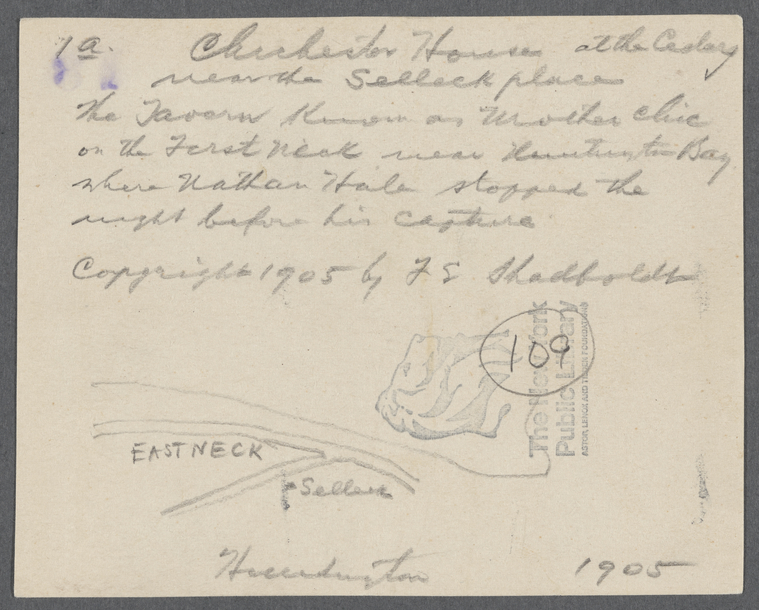 1a. Chichester House at the Cedars
near the Selleck place
The Tavern Known as Mother Chic
on the First Neck near Huntington Bay
where Nathan Hale stopped the
night before his capture
Copyright 1905 by F E Shadboldt
109
The New York
Public Library
ASTOR LENOX AND TILDEN FOUNDATIONS
EAST NECK
Selleck
Huntington 1905